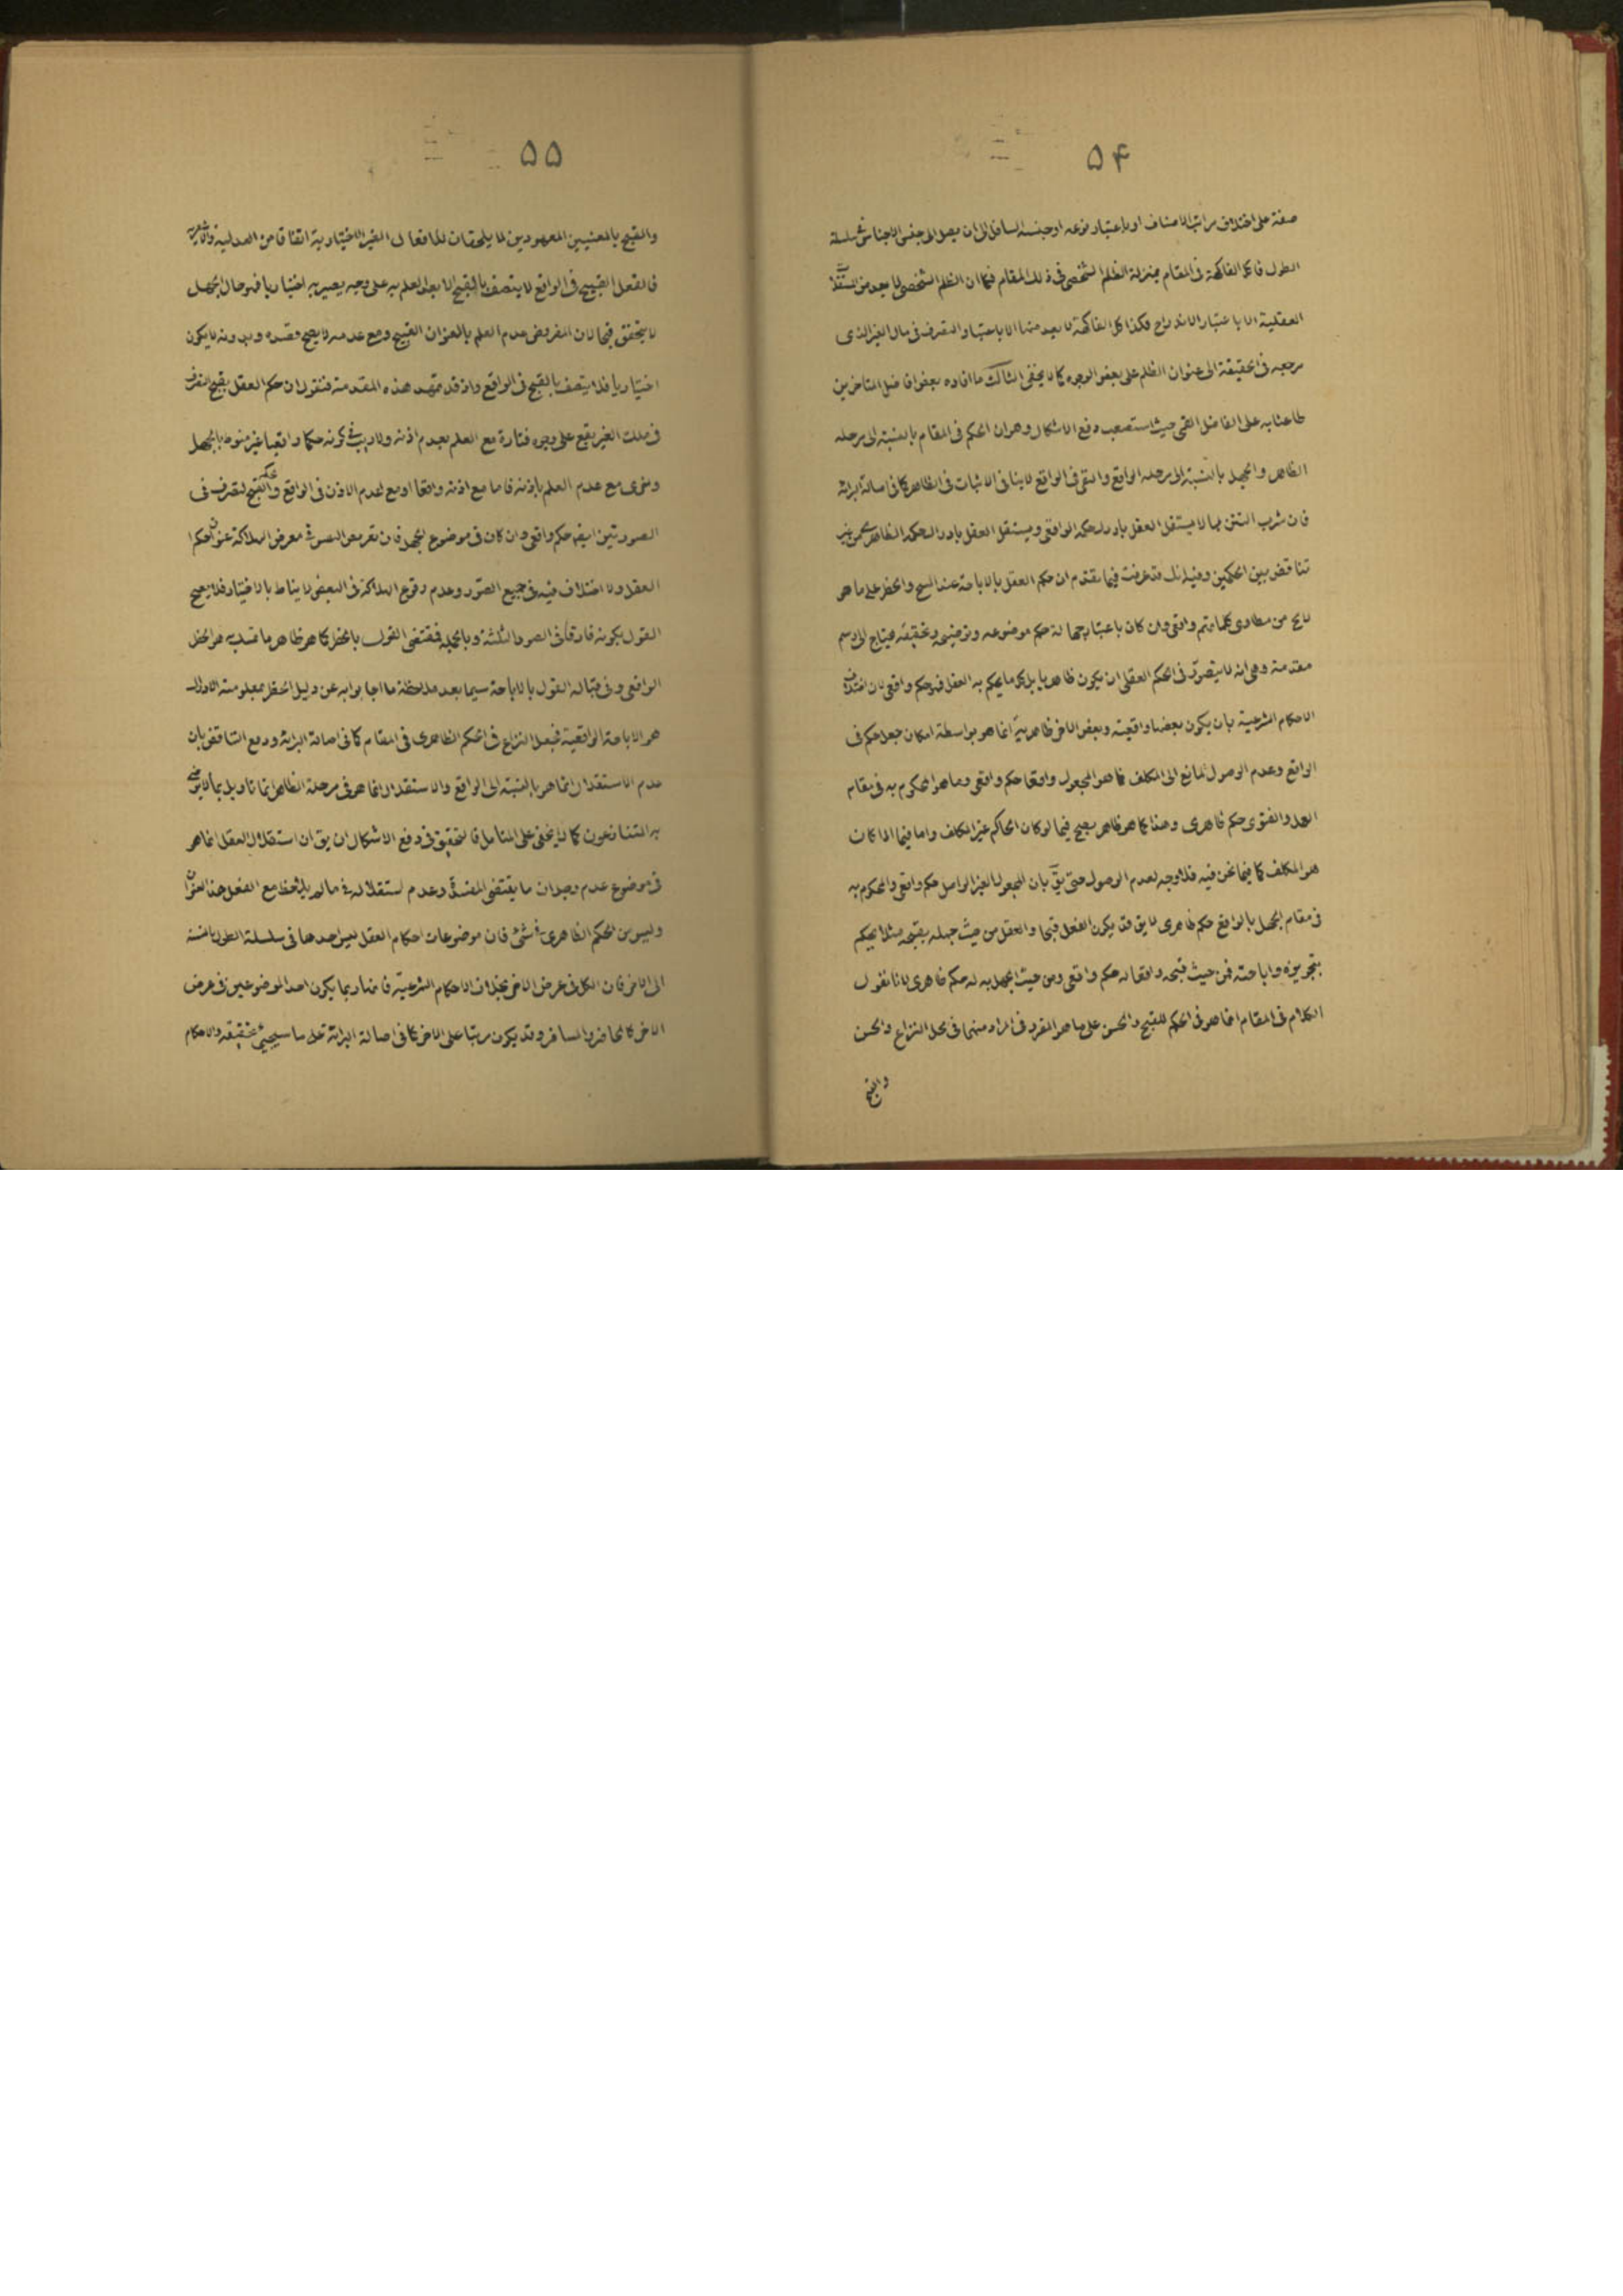 ۵۴
صفة على اختلاف مراتب الاصناف او باعتبار نوعه او جنسه السافل الى ان يصل الى جنس الاجناس فى سلسلة
الطول فاكل الفاكهة فى المقام بمنزلة الظلم الشخصى فى ذلك المقام فكما ان الظلم الشخصى لا يعد من المستقلات
العقلية الا باعتبار الاندراج فكذا اكل الفاكهة لا يعد منها الا باعتبار التصرف فى مال الغير الذى
مرجعه فى الحقيقة الى عنوان الظلم على بعض الوجوه كما لا يخفى الثالث ما افاده بعض افاضل المتاخرين
طاعنا به على الفاضل القمى حيث استصعب دفع الاشكال وهو ان الحكم فى المقام بالنسبة الى مرحلة
الظاهر والجهل بالنسبة الى مرحلة الواقع والنفى فى الواقع لا ينافى الاثبات فى الظاهر كما فى اصالة البرائة
فان شرب التتن مما لا يستقل العقل بادراك حكمه الواقعى ويستقل العقل بادراك حكمه الظاهرى من غير
تناقض بين الحكمين وفيه انك قد عرفت فيما تقدم ان حكم العقل بالاباحة عند المبيح والحظر على ما هو
لائح من مطاوى كلماتهم واقعى وان كان باعتبار جهالة حكم موضوعه وتوضيحه وتحقيقه يحتاج الى رسم
مقدمة وهى انه لا يتصور فى الحكم العقلى ان يكون ظاهريا بل كل ما يحكم به العقل فهو حكم واقعى لان اختلاف
الاحكام الشرعية بان يكون بعضها واقعية وبعض الاخر ظاهرية انما هو بواسطة امكان جعل حكم فى
الواقع وعدم الوصول لمانع الى المكلف فما هو المجعول واقعا حكم واقعى وما هو المحكوم به فى مقام
العمل والفتوى حكم ظاهرى وهذا كما هو ظاهر يصح فيما لو كان الحاكم غير المكلف واما فيما اذا كان
هو المكلف كما فيما نحن فيه فلا وجه لعدم الوصول حتى يق بان المجعول الغير الواصل حكم واقعى والمحكوم به
فى مقام الجهل بالواقع حكم ظاهرى لا يق قد يكون الفعل قبيحا والعقل من حيث جهله بقبحه مثلا يحكم
بتجويزه واباحته فمن حيث قبحه واقعا له حكم واقعى ومن حيث الجهل به له حكم ظاهرى لانا نقول
الكلام فى المقام انما هو فى الحكم للقبح والحسن على ما هو المقرر فى المراد منهما فى محل النزاع والحسن
والقبح
۵۵
والقبح بالمعنيين المعهودين لا يلحقان للافعال الغير الاختيارية اتفاقا من العدلية والاشاعرة
فالفعل القبيح فى الواقع لا يتصف بالقبح الا بعد العلم به على وجه يصير به اختياريا فهو حال الجهل
لا يتحقق قبحا لان المفروض عدم العلم بالعنوان القبيح ومع عدمه لا يصح قصده وبدونه لا يكون
اختياريا فلا يتصف بالقبح فى الواقع واذ قد تمهد هذه المقدمة فنقول ان حكم العقل بقبح التصرف
فى ملك الغير يقع على وجوه فتارة مع العلم بعدم اذنه ولا ريب فى كونه حكما واقعيا غير منوط بالجهل
واخرى مع عدم العلم باذنه فاما مع اذنه واقعا او مع عدم الاذن فى الواقع والحكم بقبح التصرف فى
الصورتين ايضا حكم واقعى وان كان فى موضوع الجهل فان تعريض النفس فى معرض الهلاكة عنوان لحكم
العقل ولا اختلاف فيه فى جميع الصور وعدم وقوع الهلاكة فى البعض لا يناط بالاختيار فلا يصح
القول بكونه فارقا فى الصور الثلثة وبالجملة فمقتضى القول بالحظر كما هو ظاهر ما تمسك به هو الحظر
الواقعى وفى قباله القول بالاباحة سيما بعد ملاحظة ما اجابوا به عن دليل الحظر بمعلومية الاذن اذ
هو الاباحة الواقعية فجعل النزاع فى الحكم الظاهرى فى المقام كما فى اصالة البرائة ودفع التناقض بان
عدم الاستقلال انما هو بالنسبة الى الواقع والاستقلال انما هو فى مرحلة الظاهر انما تاويل بما لا يرضى
به المتنازعون كما لا يخفى على المتامل فالتحقيق فى دفع الاشكال ان يق ان استقلال العقل انما هو
فى موضوع عدم وجدان ما يقتضى المفسدة وعدم استقلاله فى ما لم يلاحظ مع الفعل هذا العنوان
وليس من الحكم الظاهرى فى شئ فان موضوعات احكام العقل ليس احدها فى سلسلة الطول بالنسبة
الى الاخر فان الكل فى عرض الاخر بخلاف الاحكام الشرعية فانها ربما يكون احد الموضوعين فى عرض
الاخر كالحاضر والمسافر وقد يكون مرتبا على الاخر كما فى اصالة البرائة على ما سيجئ تحقيقه والاحكام